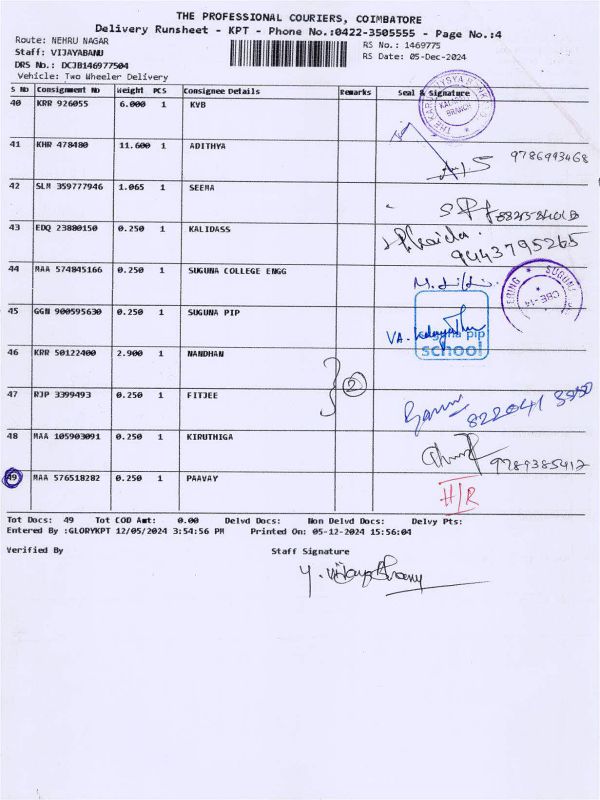 THE PROFESSIONAL COURIERS, COIMBATORE
Delivery Runsheet - KPT - Phone No.:0422-3505555 - Page No.:4
Route: NEHRU NAGAR
RS No.: 1469775
Staff: VIJAYABANU
RS Date: 05-Dec-2024
DRS No.: DCJB146977504
Vehicle: Two Wheeler Delivery
S No Consignment No Weight PCS Consignee Details Remarks Seal & Signature
40 KRR 926055 6.000 1 KVB
41 KHR 478480 11.600 1 ADITHYA
9786993468
42 SLM 359777946 1.065 1 SEEMA
43 EDQ 23880150 0.250 1 KALIDASS
9443795265
44 MAA 574845166 0.250 1 SUGUNA COLLEGE ENGG
45 GGN 900595630 0.250 1 SUGUNA PIP
suguna pip
school
46 KRR 50122400 2.900 1 NANDHAN
2
47 RJP 3399493 0.250 1 FITJEE
48 MAA 105903091 0.250 1 KIRUTHIGA
9789385412
49 MAA 576518282 0.250 1 PAAVAY
H/R
Tot Docs: 49 Tot COD Amt: 0.00 Delvd Docs: Non Delvd Docs: Delvy Pts:
Entered By :GLORYKPT 12/05/2024 3:54:56 PM Printed On: 05-12-2024 15:56:04
Verified By Staff Signature